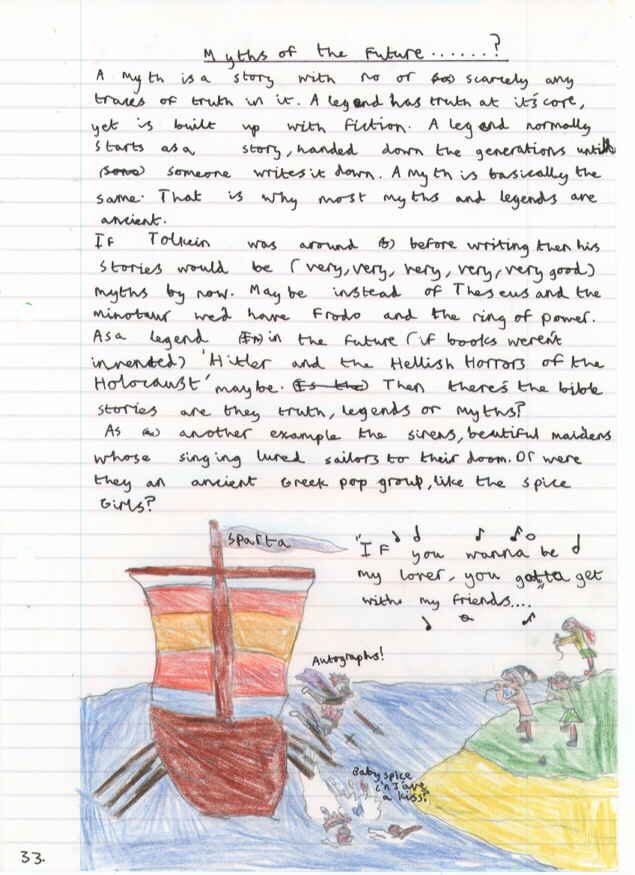 Myths of the Future......?
A myth is a story with no or scarcely any
traces of truth in it. A legend has truth at it's core,
yet is built up with fiction. A legend normally
starts as a story, handed down the generations until
someone writes it down. A myth is basically the
same. That is why most myths and legends are
ancient.
If Tolkein was around before writing then his
stories would be (very, very, very, very, very good)
myths by now. Maybe instead of Theseus and the
minotaur we'd have Frodo and the ring of power.
As a legend in the future (if books weren't
invented) 'Hitler and the Hellish Horrors of the
Holocaust' maybe. Then there's the bible
stories are they truth, legends or myths?
As another example the sirens, beautiful maidens
whose singing lured sailors to their doom. Or were
they an ancient Greek pop group, like the Spice
Girls?
Sparta
"If you wanna be
my lover, you gotta get
with my friends....
Autographs!
Baby spice
c'n I 'ave
a kiss?
33.